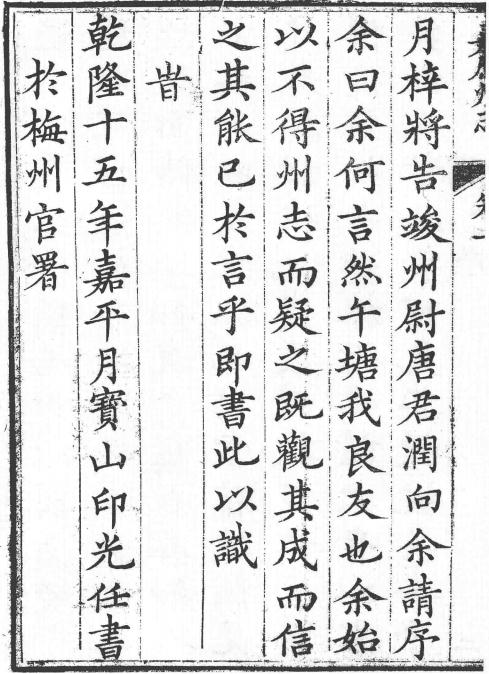 月梓將告竣州尉唐君潤向余請序
余曰余何言然午塘我良友也余始
以不得州志而疑之既觀其成而信
之其能已於言乎即書此以識
旹
乾隆十五年嘉平月寶山印光任書
於梅州官署